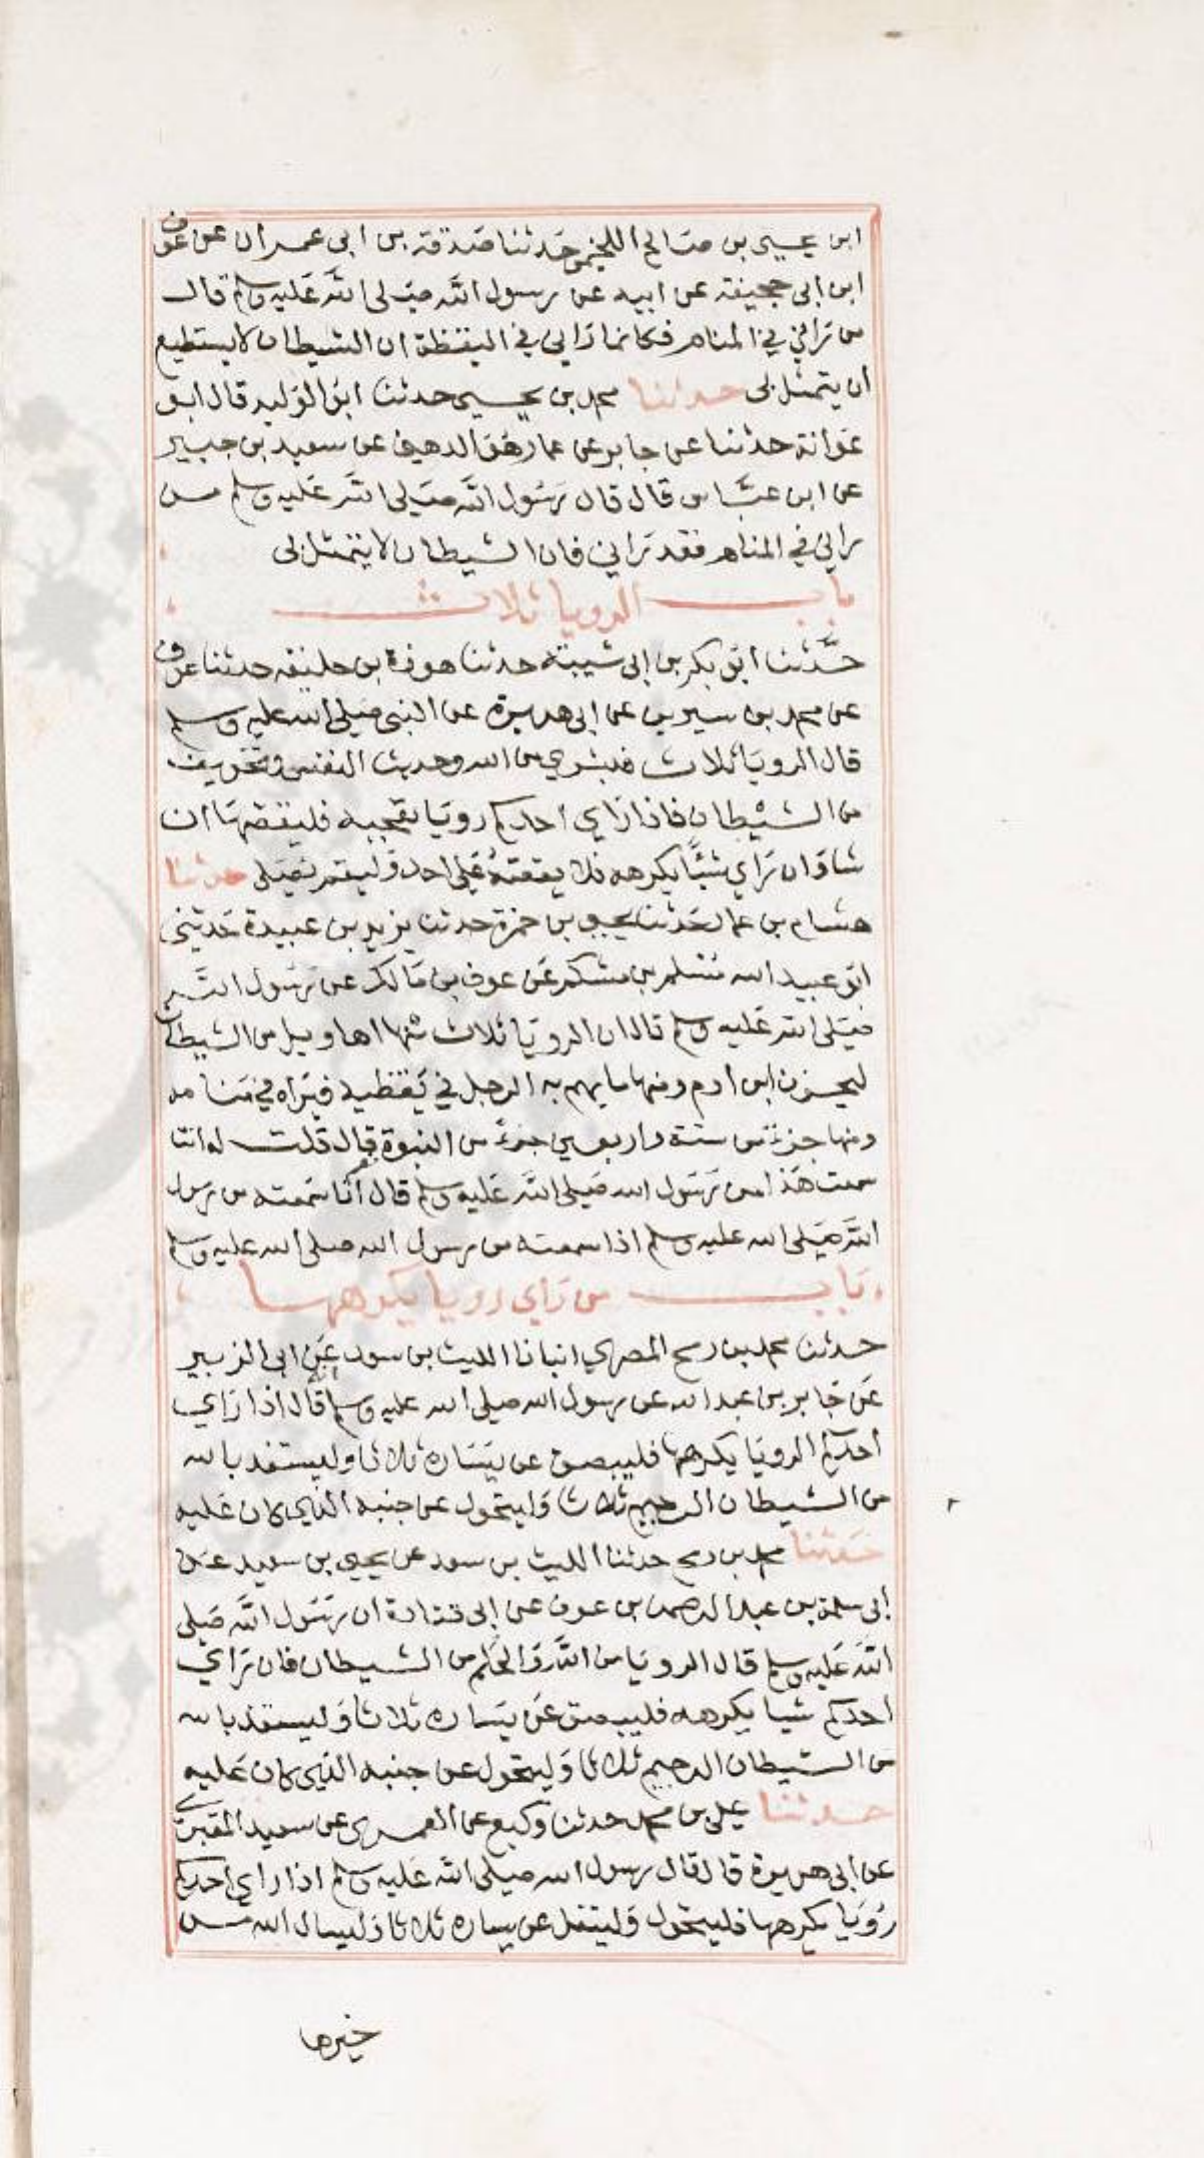 ابن يحيى بن صالح اللخمي حدثنا صدقة بن ابي عمران عن عون
ابن ابي جحيفة عن ابيه عن رسول الله صلى الله عليه وسلم قال
من راني في المنام فكانما راني في اليقظة ان الشيطان لا يستطيع
ان يتمثل بي حدثنا محمد بن يحيى حدثنا ابو الوليد قال ابو
عوانة حدثنا عن جابر عن عمار هو الدهني عن سعيد بن جبير
عن ابن عباس قال قال رسول الله صلى الله عليه وسلم من
راني في المنام فقد راني فان الشيطان لا يتمثل بي
باب الرويا ثلاث
حدثنا ابو بكر بن ابي شيبة حدثنا هوذة بن خليفه حدثنا عوف
عن محمد بن سيرين عن ابي هريرة عن النبي صلى الله عليه وسلم
قال الرويا ثلاث فبشرى من الله وحديث النفس وتخويف
من الشيطان فاذا راي احدكم رويا تعجبه فليقصها ان
شا وان راي شيًا يكرهه فلا يقصه على احد وليقم يصلى حدثنا
هشام بن عمار حدثنا يحيى بن حمزة حدثنا يزيد بن عبيدة حدثني
ابو عبيد الله مسلم بن مشكم عن عوف بن مالك عن رسول الله
صلى الله عليه وسلم قال ان الرويا ثلاث منها اهاويل من الشيطان
ليحزن ابن ادم ومنها ما يهم به الرجل في يقظته فيراه في منامه
ومنها جزء من ستة واربعين جزءً من النبوة قال قلت له انت
سمعت هذا من رسول الله صلى الله عليه وسلم قال انا سمعته من رسول
الله صلى الله عليه وسلم اذا سمعته من رسول الله صلى الله عليه وسلم
باب من راي رويا يكرهها
حدثنا محمد بن رمح المصري انبانا الليث بن سعد عن ابي الزبير
عن جابر بن عبد الله عن رسول الله صلى الله عليه وسلم انه قال اذا راي
احدكم الرويا يكرهها فليبصق عن يساره ثلاثا وليستعذ بالله
من الشيطان الرجيم ثلاثا وليتحول عن جنبه الذي كان عليه
حدثنا محمد بن رمح حدثنا الليث بن سعد عن يحيى بن سعيد عن
ابي سلمة بن عبد الرحمن بن عوف عن ابي قتادة ان رسول الله صلى
الله عليه وسلم قال الرويا من الله والحلم من الشيطان فان راي
احدكم شيا يكرهه فليبصق عن يساره ثلاثا وليستعذ بالله
من الشيطان الرجيم ثلاثا وليتحول عن جنبه الذي كان عليه
حدثنا علي بن محمد حدثنا وكيع عن العمري عن سعيد المقبري
عن ابي هريرة قال قال رسول الله صلى الله عليه وسلم اذا راي احدكم
رويا يكرهها فليتحول وليتفل عن يساره ثلاثا وليسال الله من
خيرها